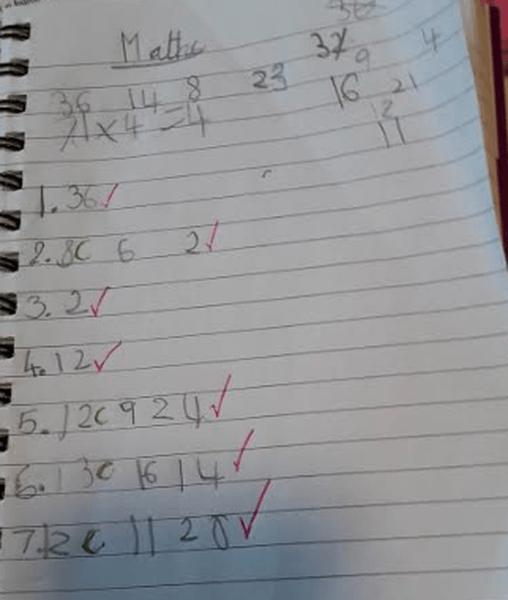 Maths
37 9 4
36 14 8 23 16 21
71 x 4 = 4 2
11
1. 36 ✓
2. 8c 6 2 ✓
3. 2 ✓
4. 12 ✓
5. 12c 9 2 4 ✓
6. 13c 16 14 ✓
7. 12c 11 20 ✓